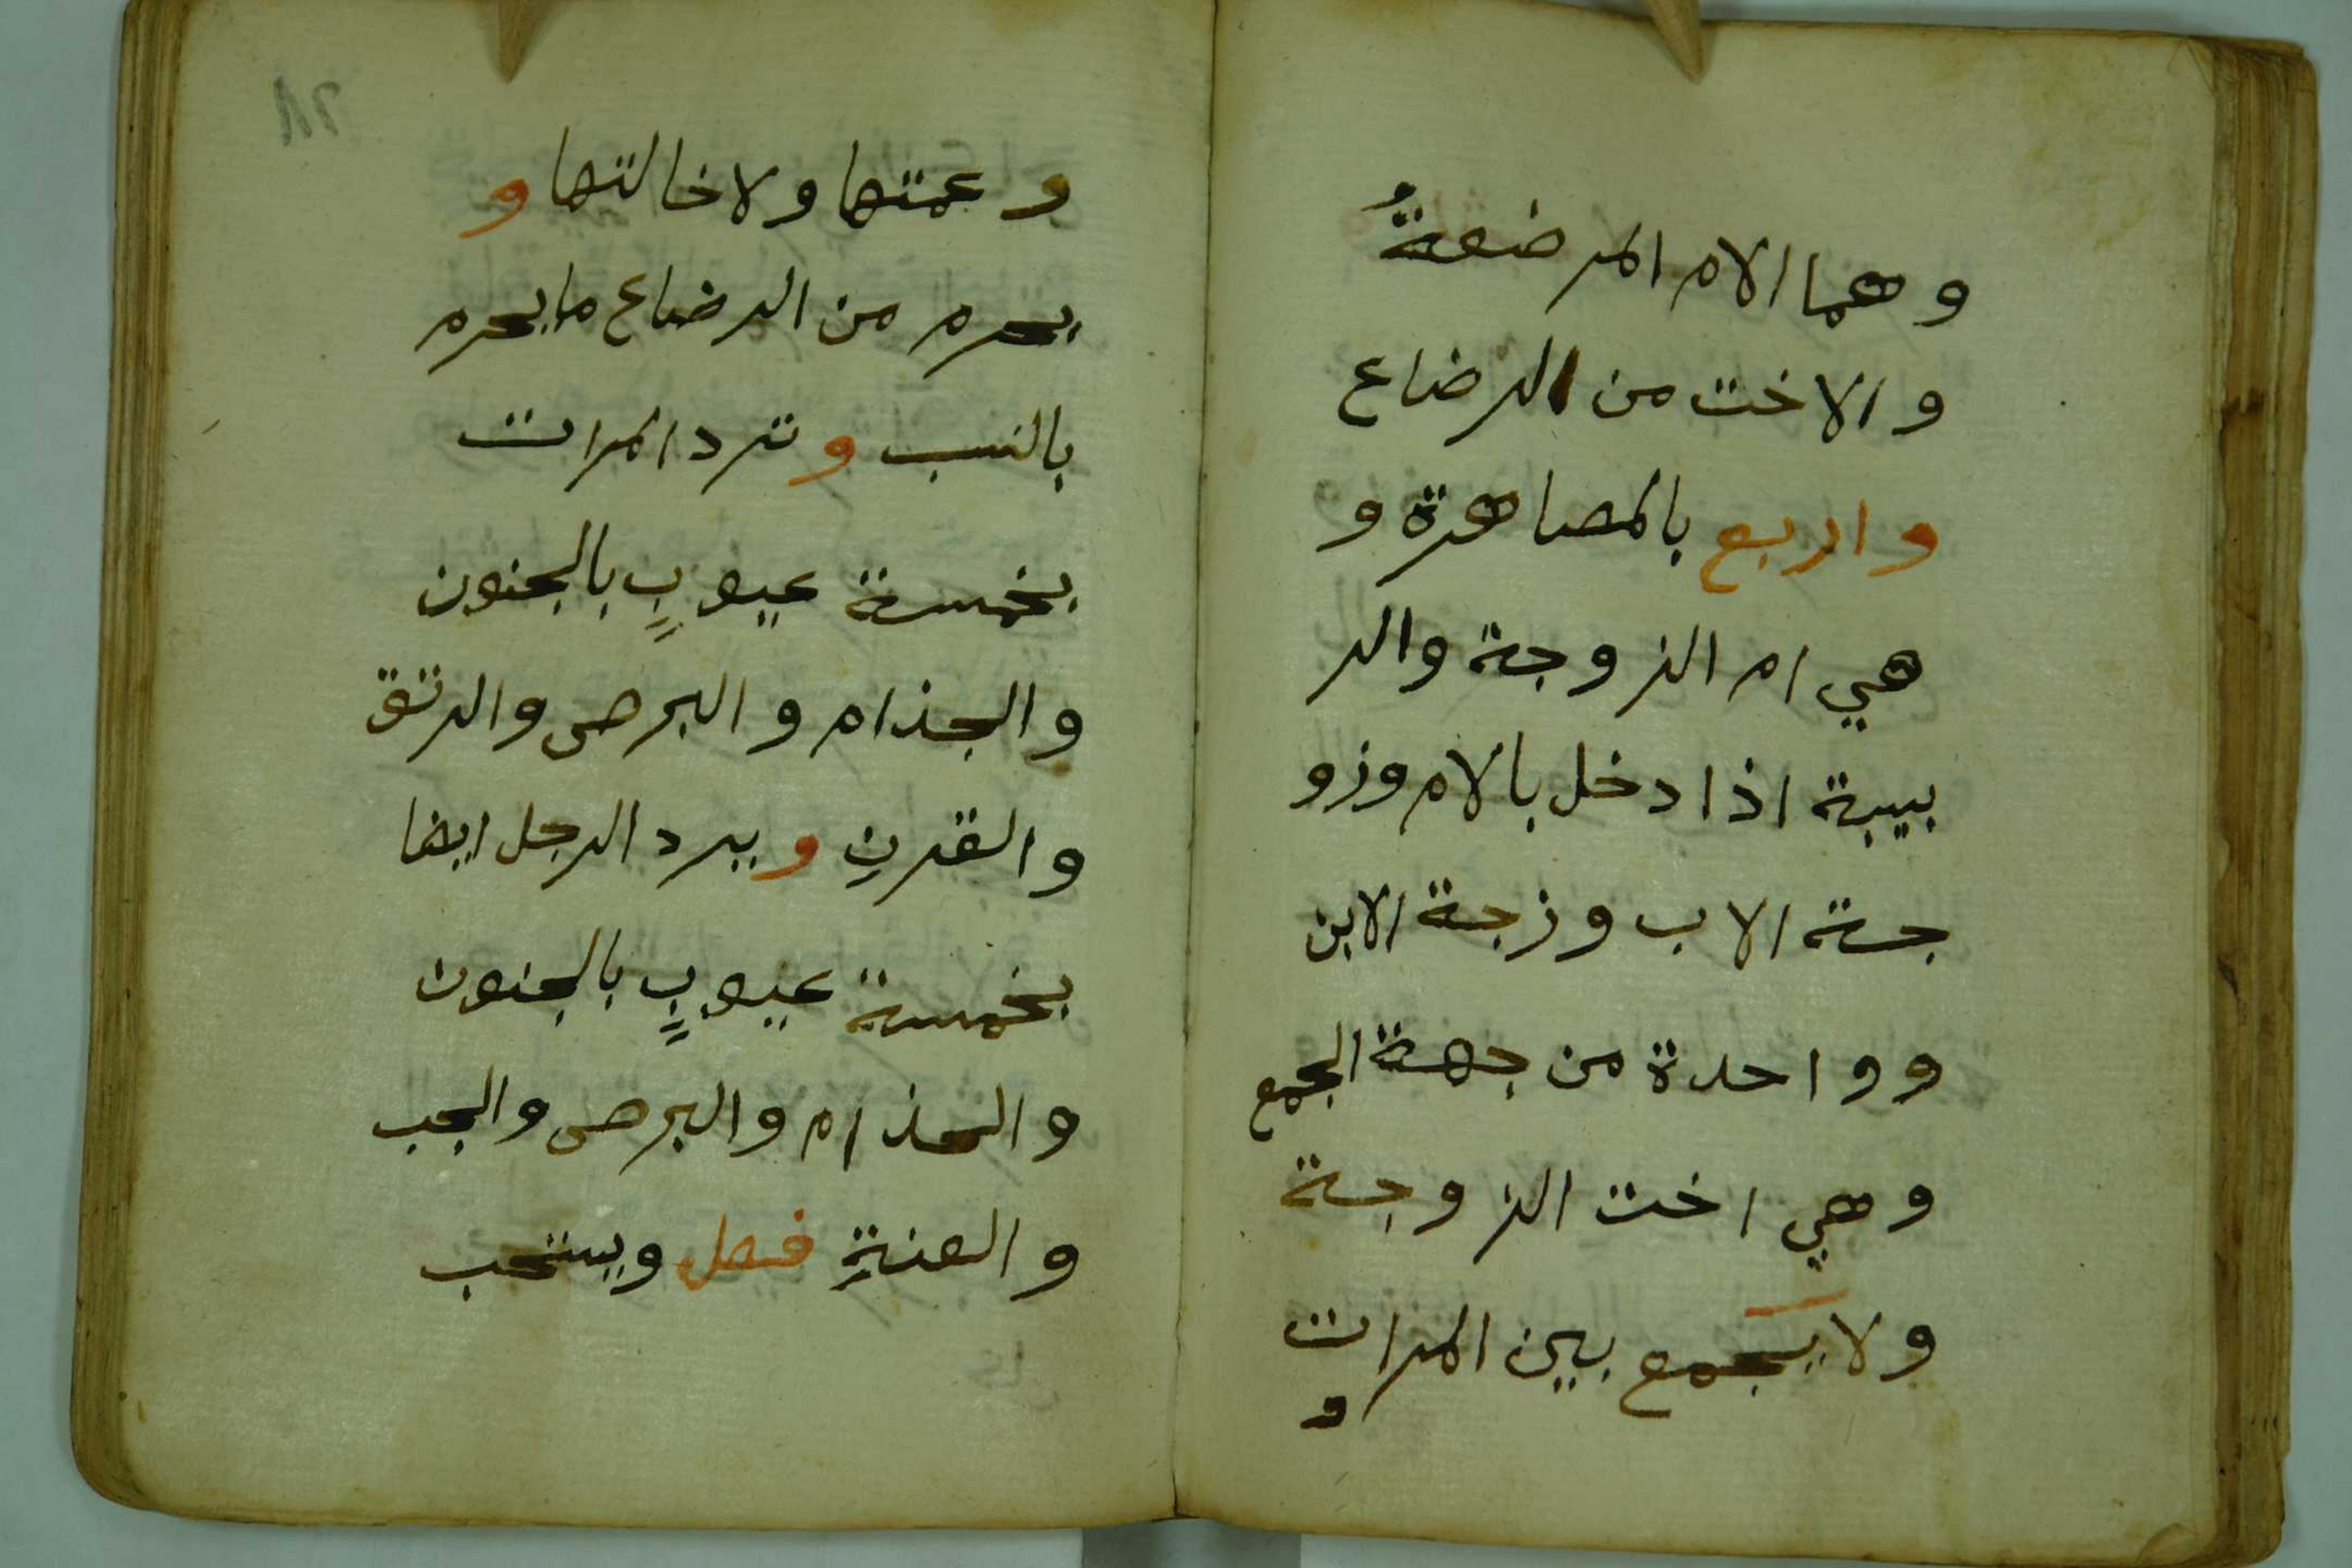 وهما الام المرضعةُ
والاخت من الرضاع
واربع بالمصاهرة و
هي ام الزوجة والر
بيبة اذا دخل بالام وزو
جة الاب وزجة الابن
وواحدة من جهة الجمع
وهي اخت الزوجة
ولا يَجمع بين المرات
و
وعمتها ولا خالتها و
يحرم من الرضاع ما يحرم
بالنسب وترد المرات
بخمسة عيوبٍ بالجنون
والجذام والبرص والرتق
والقرنِ ويرد الرجل ايضا
بخمسة عيوبٍ بالجنون
والجذام والبرص والجب
والعنةِ فصل ويستحب